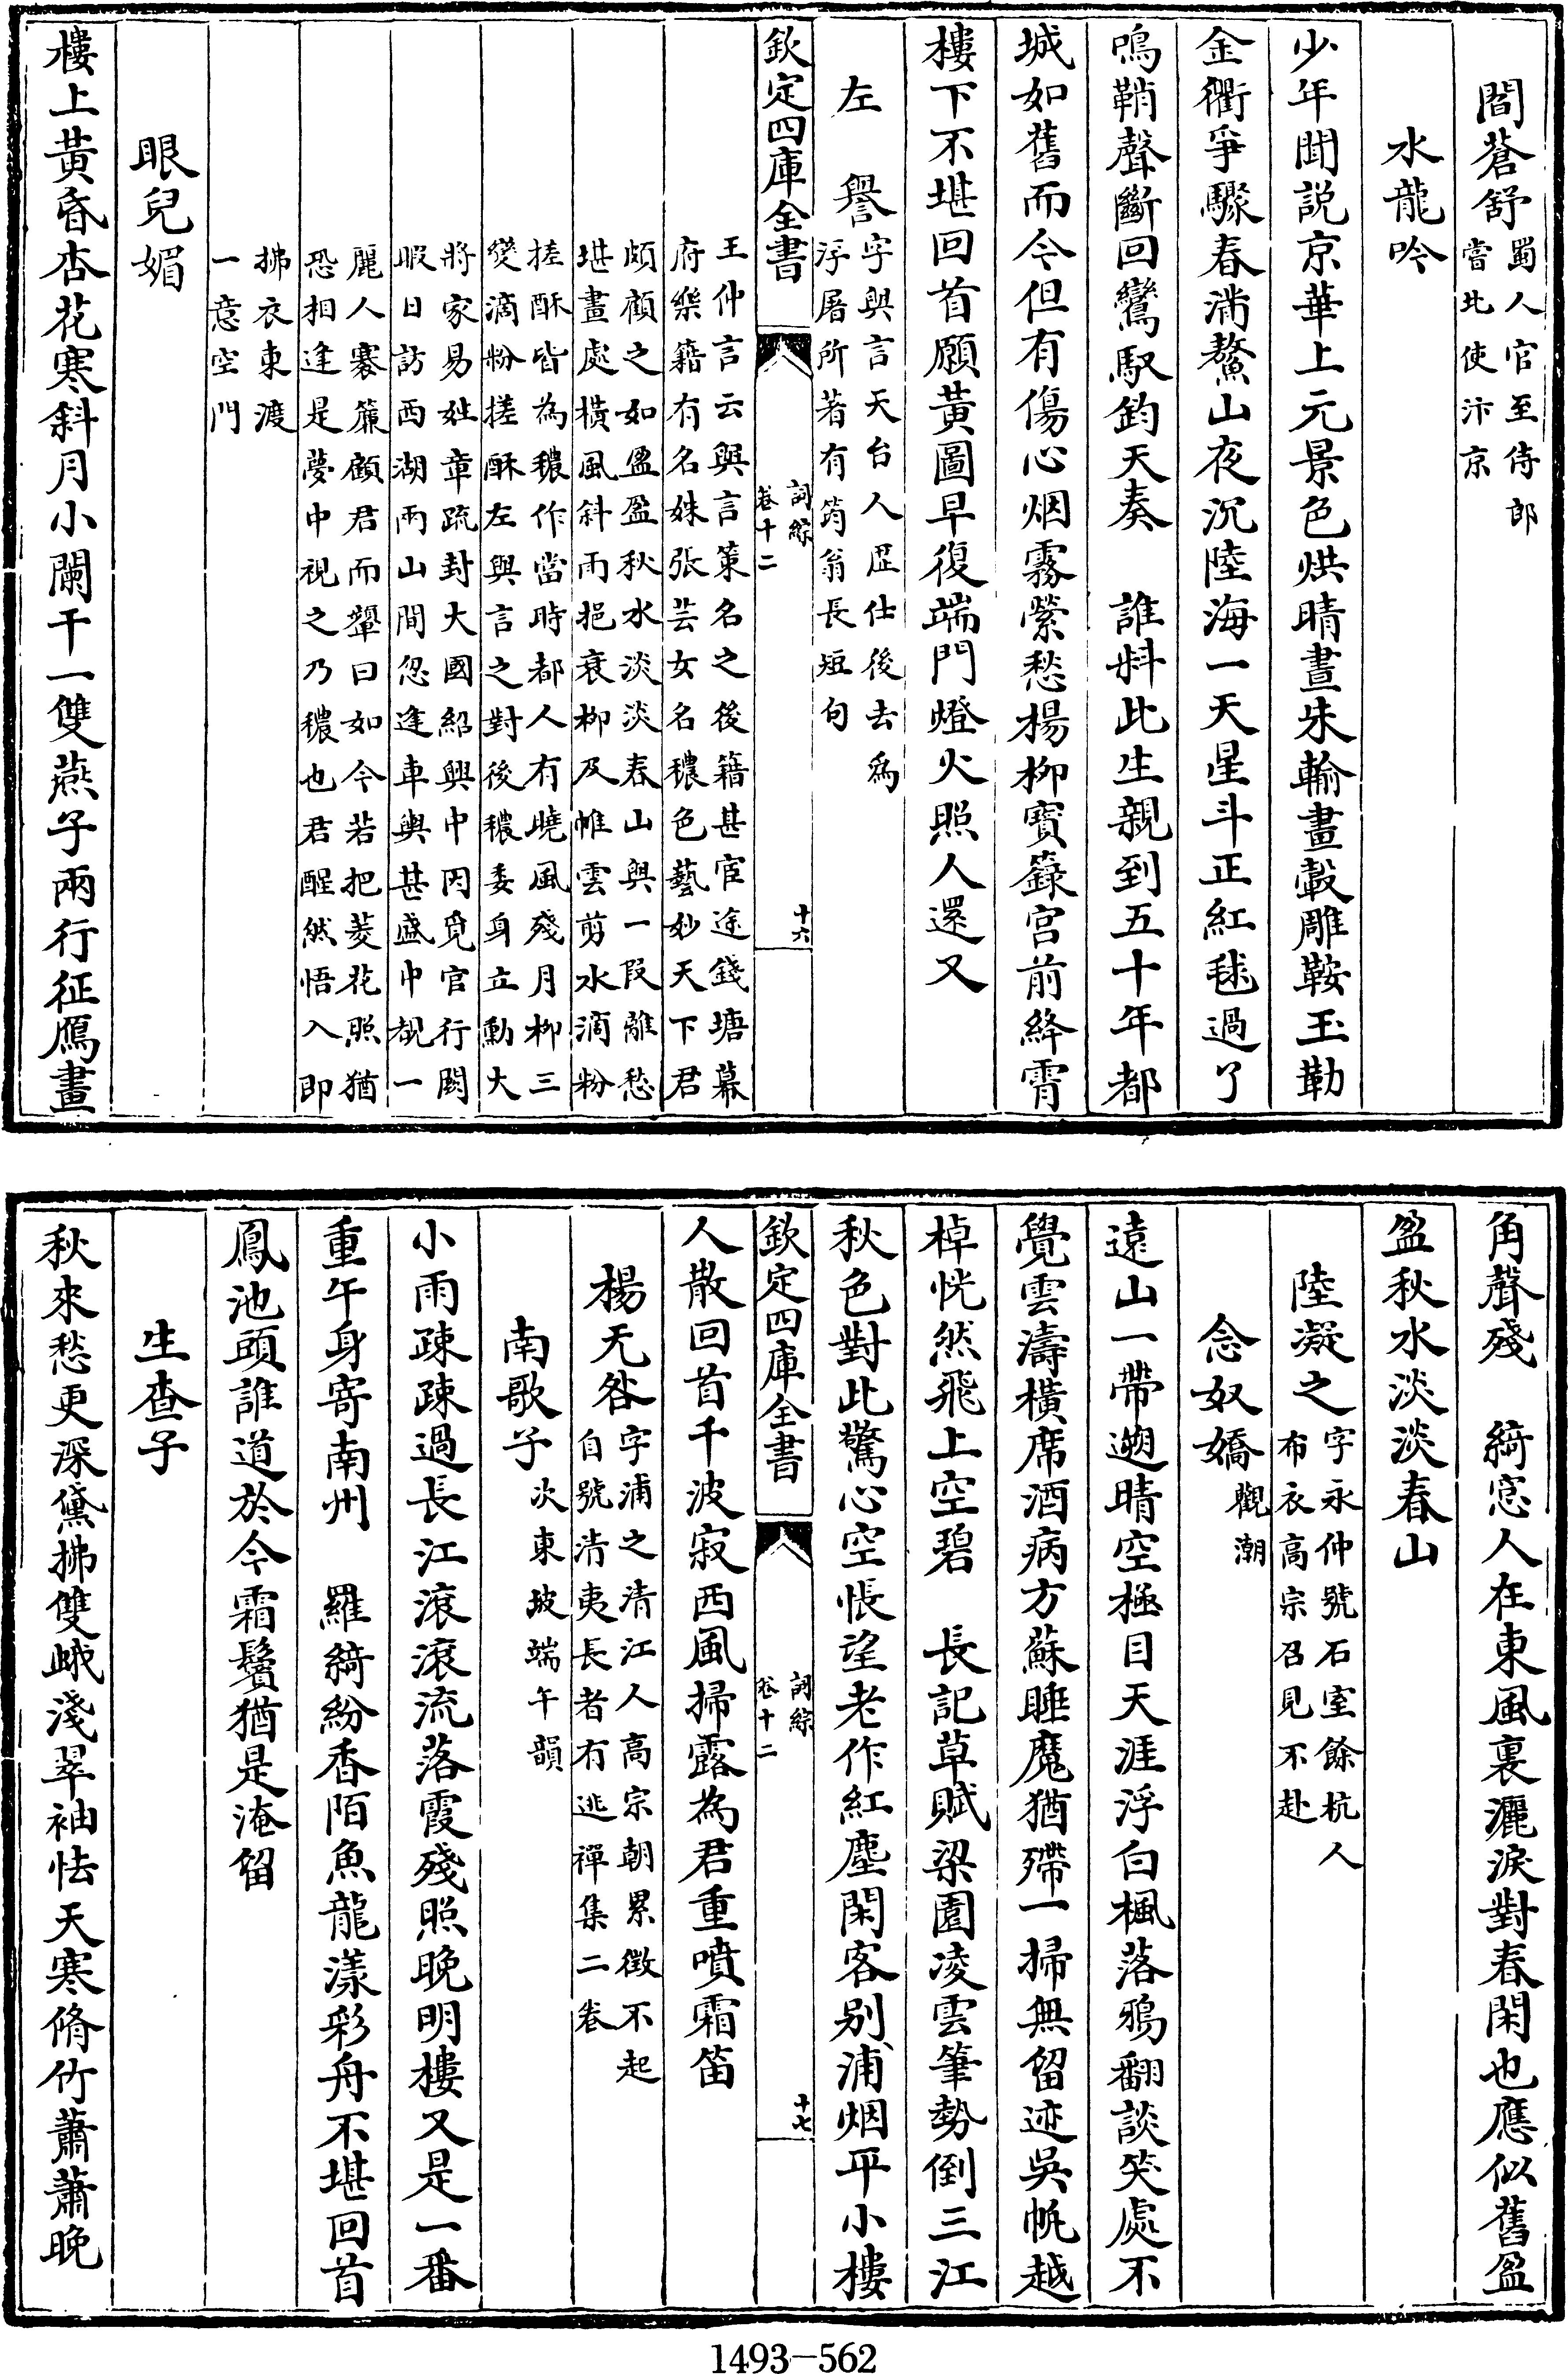 閻蒼舒蜀人官至侍郎
嘗北使汴京
水龍吟
少年聞説京華上元景色烘晴晝朱輪畫轂雕鞍玉勒
金衢爭驟春滿鰲山夜沉陸海一天星斗正紅毬過了
鳴鞘聲斷回鸞馭鈞天奏　誰料此生親到五十年都
城如舊而今但有傷心烟霧縈愁楊柳寳籙宫前絳霄
樓下不堪回首願黄圖早復端門燈火照人還又
左　譽字與言天台人歴仕後去為
浮屠所著有筠翁長短句
欽定四庫全書
詞綜
卷十二
十六
王仲言云與言策名之後籍甚宦途錢塘幕
府樂籍有名姝張芸女名穠色藝妙天下君
頗顧之如盈盈秋水淡淡春山與一段離愁
堪畫處横風斜雨挹衰柳及帷雲剪水滴粉
搓酥皆為穠作當時都人有曉風殘月柳三
變滴粉搓酥左與言之對後穠委身立勳大
將家易姓章疏封大國紹興中因覓官行闕
暇日訪西湖兩山間忽逢車輿甚盛中覩一
麗人褰簾顧君而顰曰如今若把菱花照猶
恐相逢是夢中視之乃穠也君醒然悟入即
拂衣東渡
一意空門
眼兒媚
樓上黄昏杏花寒斜月小闌干一雙燕子兩行征鴈畫
角聲殘　綺窓人在東風裏灑淚對春閑也應似舊盈
盈秋水淡淡春山
陸凝之字永仲號石室餘杭人
布衣高宗召見不赴
念奴嬌觀潮
遠山一帶遡晴空極目天涯浮白楓落鴉翻談笑處不
覺雲濤横席酒病方蘇睡魔猶殢一掃無留迹吳帆越
棹恍然飛上空碧　長記草賦梁園凌雲筆勢倒三江
秋色對此驚心空悵望老作紅塵閑客别浦烟平小樓
欽定四庫全書
詞綜
卷十二
十七
人散回首千波寂西風掃露為君重噴霜笛
楊无咎字浦之清江人高宗朝累徵不起
自號清夷長者有逃禪集二卷
南歌子次東坡端午韻
小雨疎疎過長江滚滚流落霞殘照晚明樓又是一番
重午身寄南州　羅綺紛香陌魚龍漾彩舟不堪回首
鳳池頭誰道於今霜鬢猶是淹留
生查子
秋來愁更深黛拂雙蛾淺翠袖怯天寒脩竹蕭蕭晚
1493—562